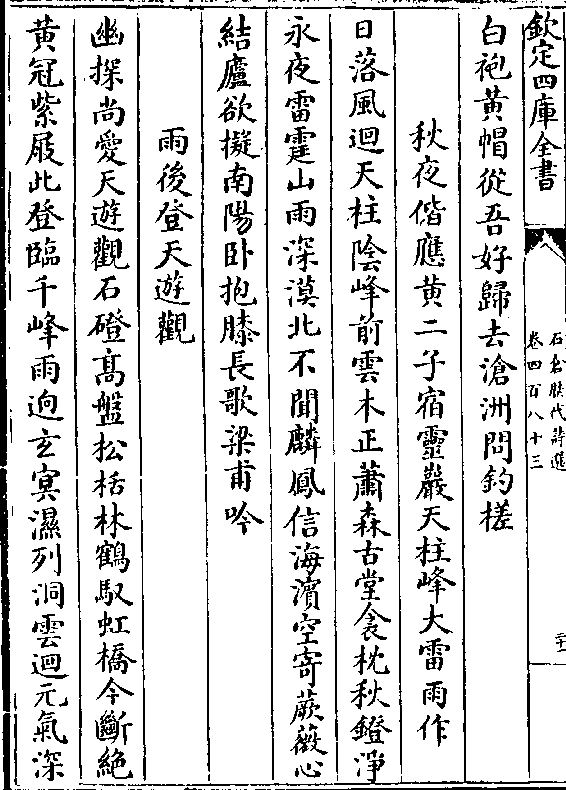 欽定四庫全書
石倉歷代詩選
卷四百八十三
二十
白袍黄帽從吾好歸去滄洲問釣槎
秋夜偕應黄二子宿靈巖天柱峰大雷雨作
日落風迴天柱陰峰前雲木正蕭森古堂衾枕秋鐙淨
永夜雷霆山雨深漠北不聞麟鳳信海濱空寄蕨薇心
結廬欲擬南陽卧抱膝長歌梁甫吟
雨後登天遊觀
幽探尚愛天遊觀石磴髙盤松栝林鶴馭虹橋今斷絶
黄冠紫屐此登臨千峰雨迥玄冥濕列洞雲迴元氣深